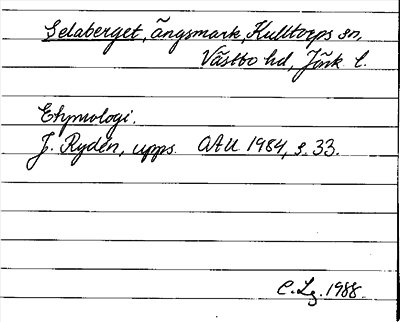 Selaberget, ängsmark, Kulltorps sn,
Västbo hd, Jönk. l.
Etymologi.
J. Rydén, upps. OAU 1984, s. 33.
C. Lg. 1988.